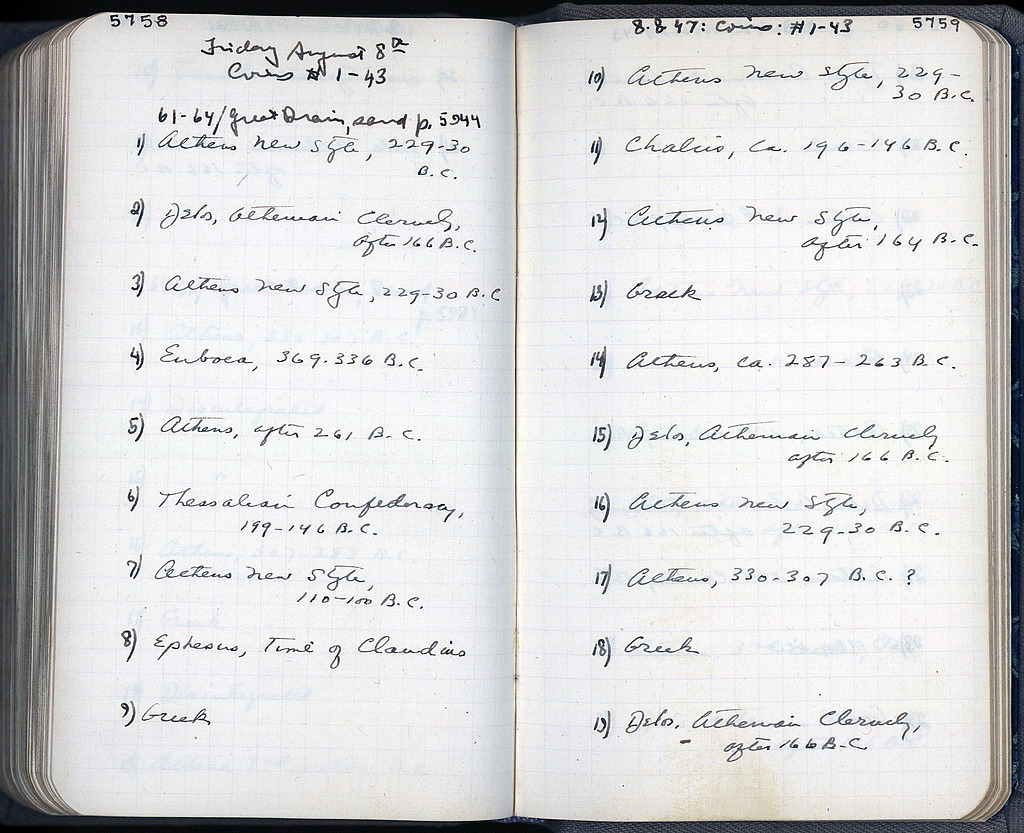 5758
Friday August 8th
Coins # 1-43
61-64/Great Drain, sand p. 5944
1) Athens New Style, 229-30
B.C.
2) Delos, Athenian Cleruchy,
after 166 B.C.
3) Athens New Style, 229-30 B.C
4) Euboea, 369-336 B.C.
5) Athens, after 261 B.C.
6) Thessalian Confederacy,
199-146 B.C.
7) Athens New Style,
110-100 B.C.
8) Ephesus, Time of Claudius
9) Greek
8.8.47: Coins: #1-43 5759
10) Athens New Style, 229-
30 B.C.
11) Chalcis, ca. 196-146 B.C.
12) Athens New Style,
after 164 B.C.
13) Greek
14) Athens, ca. 287-263 B.C.
15) Delos, Athenian Cleruchy
after 166 B.C.
16) Athens New Style,
229-30 B.C.
17) Athens, 330-307 B.C. ?
18) Greek
19) Delos, Athenian Cleruchy,
after 166 B.C